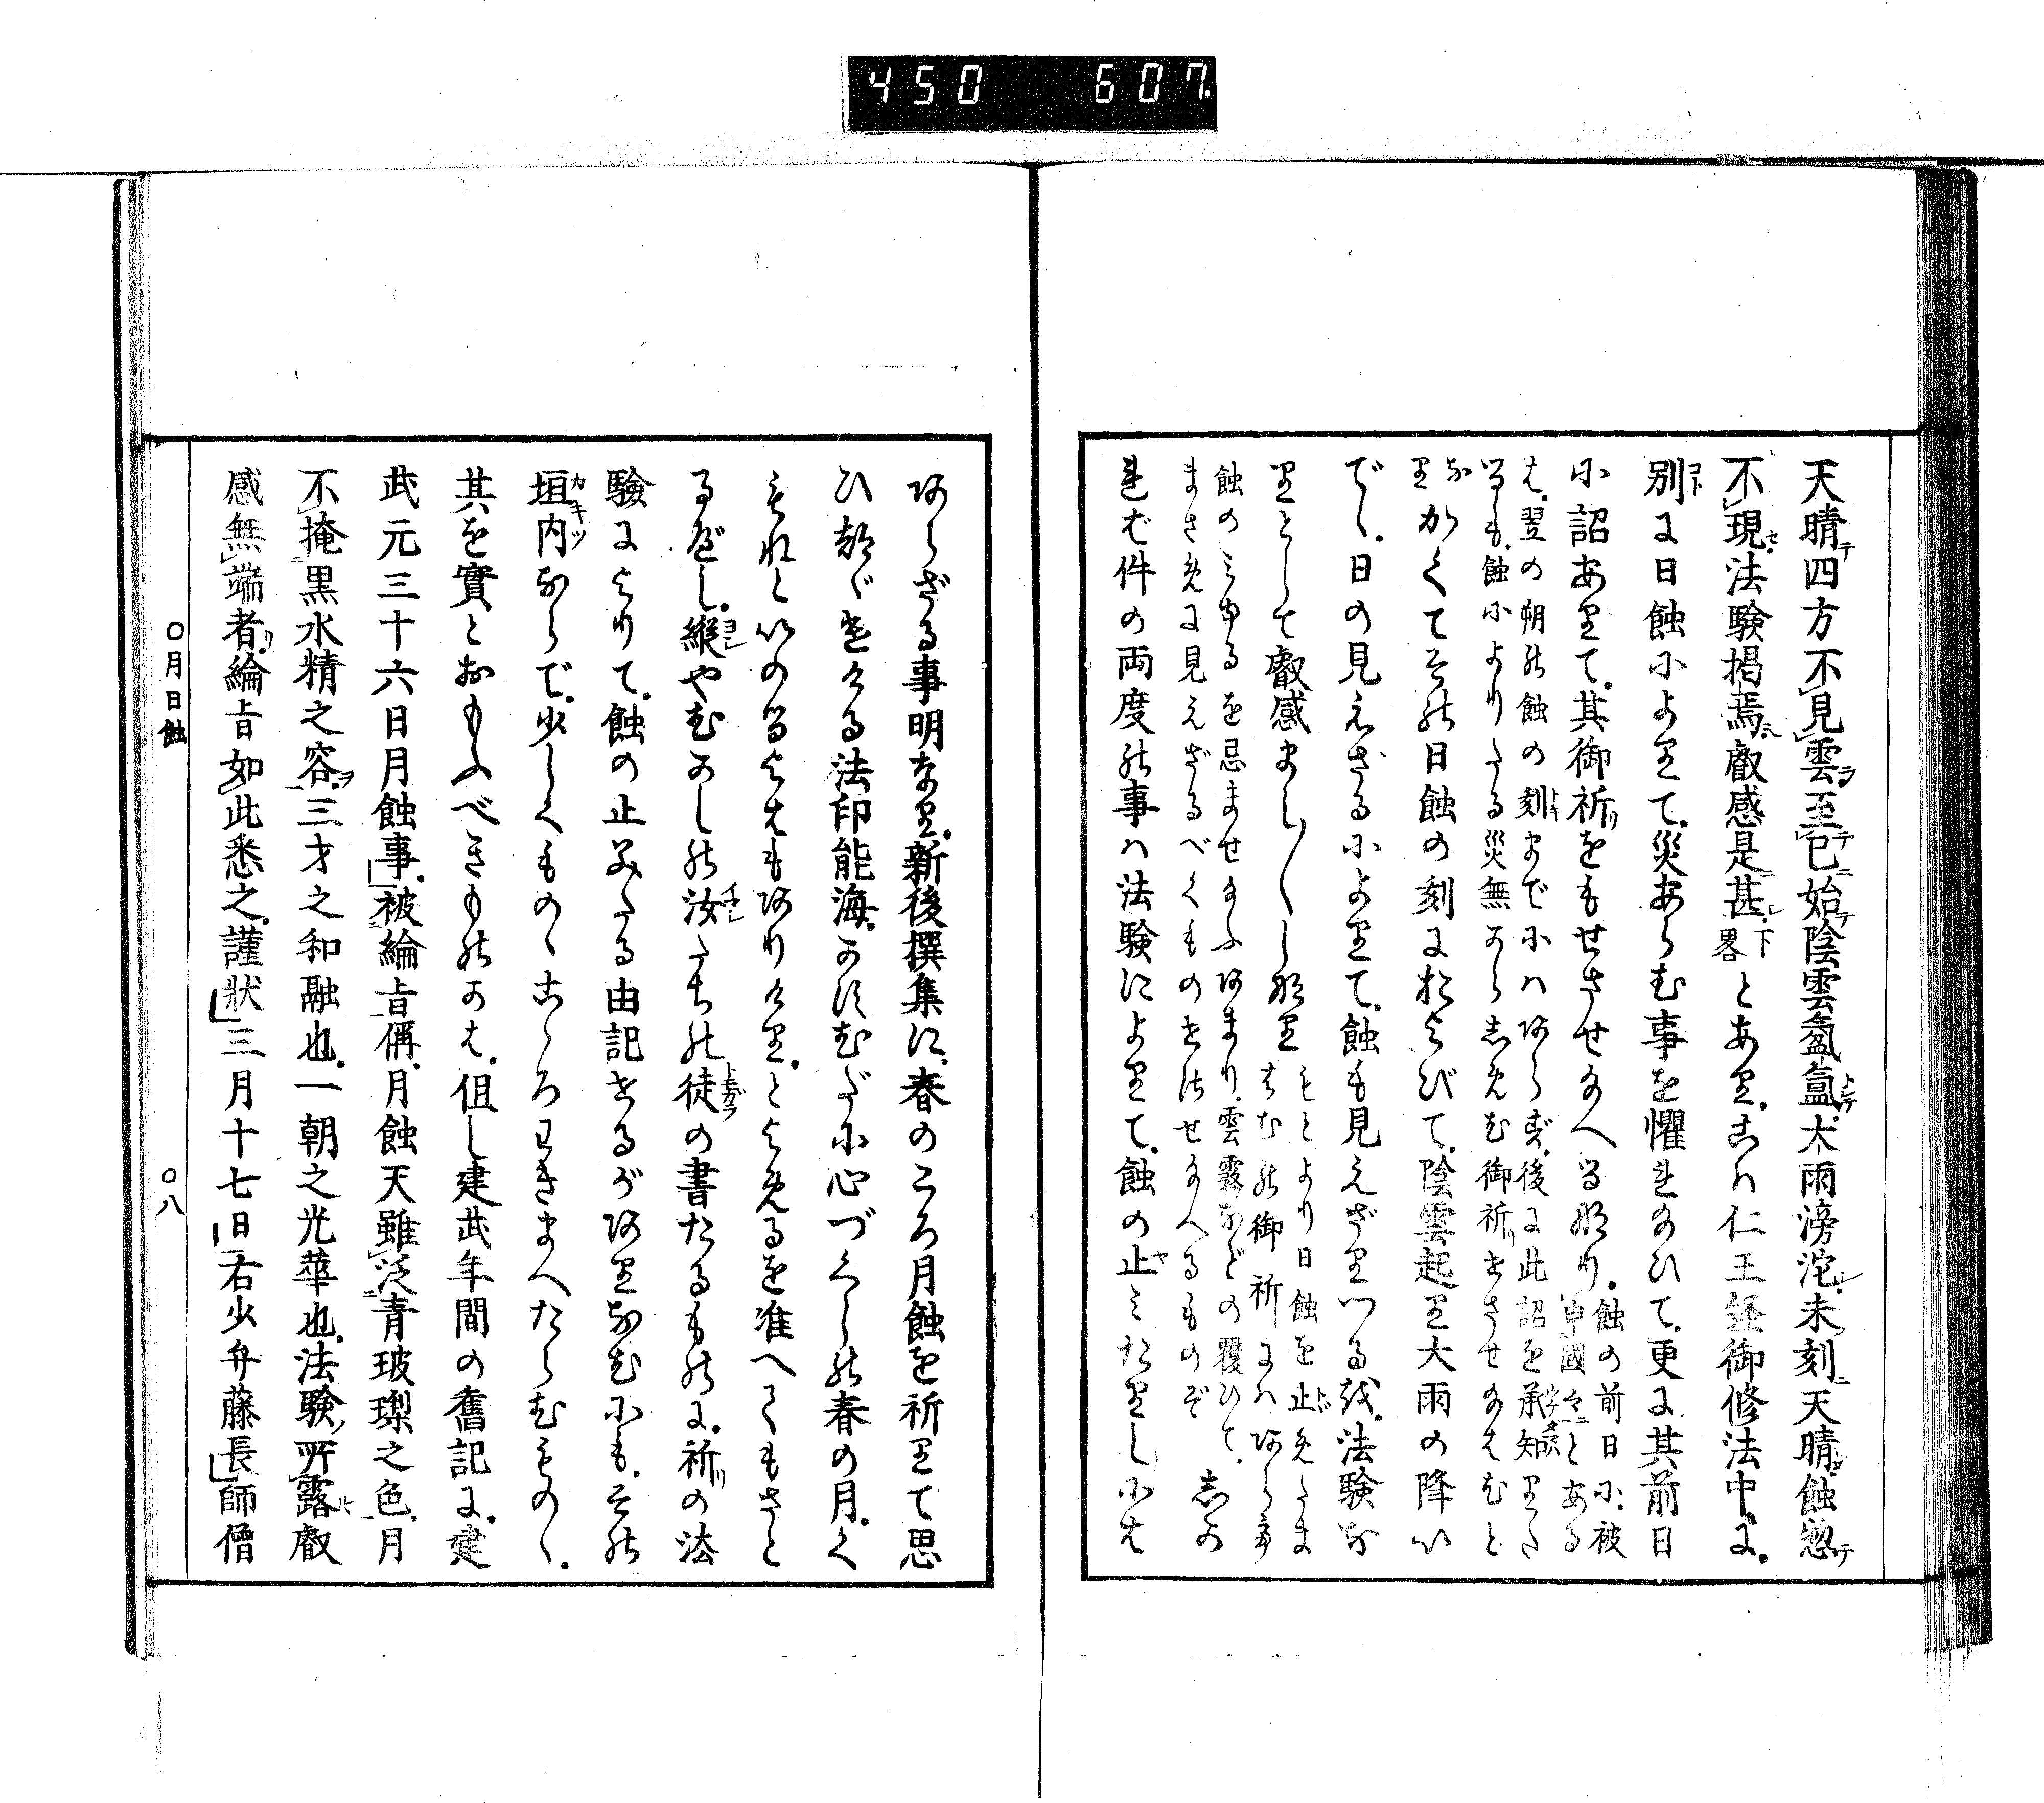 450 607.
天晴テ四方不見雲ヲ至テ已ニ始テ陰雲氤氳大雨滂沱未刻ニ天晴蝕惣テ
不現セ法験掲焉叡感是甚下畧とあり。こハ仁王経御修法中に。
別に日蝕によりて。災あらむ事を懼れ給ひて。更に其前日
に詔ありて。其御祈をもせさせ給へるなり。蝕の前日に。被申國々ニとある
は。翌の朔の蝕の刻までにハあらず。後に此詔を承知りた
るも。蝕によりたる災無からしめむ御祈せさせ給はむと
なりかくてその日蝕の刻におよびて。陰雲起り大雨の降い
でゝ。日の見えざるによりて。蝕も見えざりつるを。法験な
りとして叡感ましましゝなりもとより日蝕を止めたま
はむの御祈にハあらず
蝕のみゆるを忌ませ給ふあまり。雲霧などの覆ひて。
まさめに見えざるべくものせさせ給へるものぞしか
れば件の両度の事ハ法験によりて。蝕の止ミたりしには
あらざる事明なり。新後撰集に。春のころ月蝕を祈りて思
ひ都づけゝる法印能海。かすむだに心づくしの春の月。く
もれといのるよはもありけり。とよめるを准へてもさと
るべし。縦ヨシやむかしの汝イマシたちの徒トモガラの書たるものに。祈の法
験によりて。蝕の止みたる由記せるがありなむにも。その
垣内カキツならで。少しくものゝこゝろわきまへたらむものゝ。
其を實とおもふべきものかは。但し建武年間の舊記に。建
武元三十六日月蝕事。被綸旨偁。月蝕天雖泛青玻瓈之色。月
不掩黒水精之容。三才之和融也。一朝之光華也。法験所露叡
感無端者。綸旨如此悉之。謹状三月十七日右少弁藤長師僧
〇月日蝕
〇八